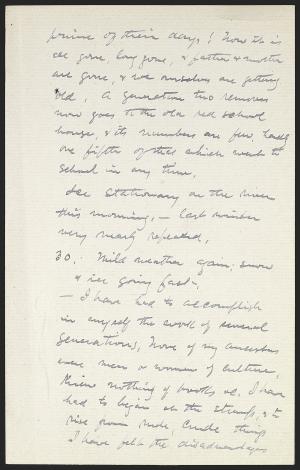 prime of their days! Now it is
all gone, long gone, & father & mother
are gone, & we ourselves are getting
old. A generation two removes
now goes to the old red school
house, & its numbers are few, hardly
one fifth of that which went to
school in my time.
Ice stationary on the river
this morning, — last winter
very nearly repeated.
30. Mild weather again; snow
& ice going fast.
— I have had to accomplish
in myself the work of several
generations, None of my ancestors
were men or women of culture,
knew nothing of books &c. I have
had to begin at the stump, & to
rise from rude, crude things
I have felt the disadvantages